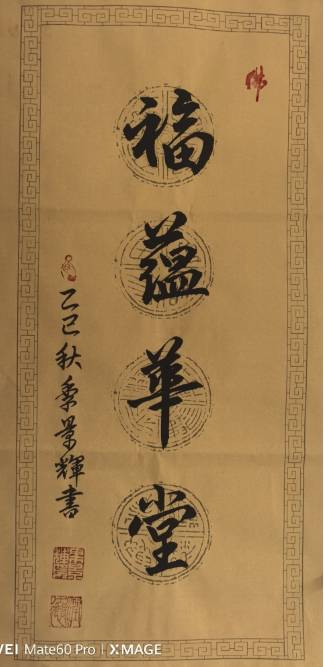 佛
福
蘊
華
堂
乙巳秋季景輝書
Mate60 Pro | XMAGE